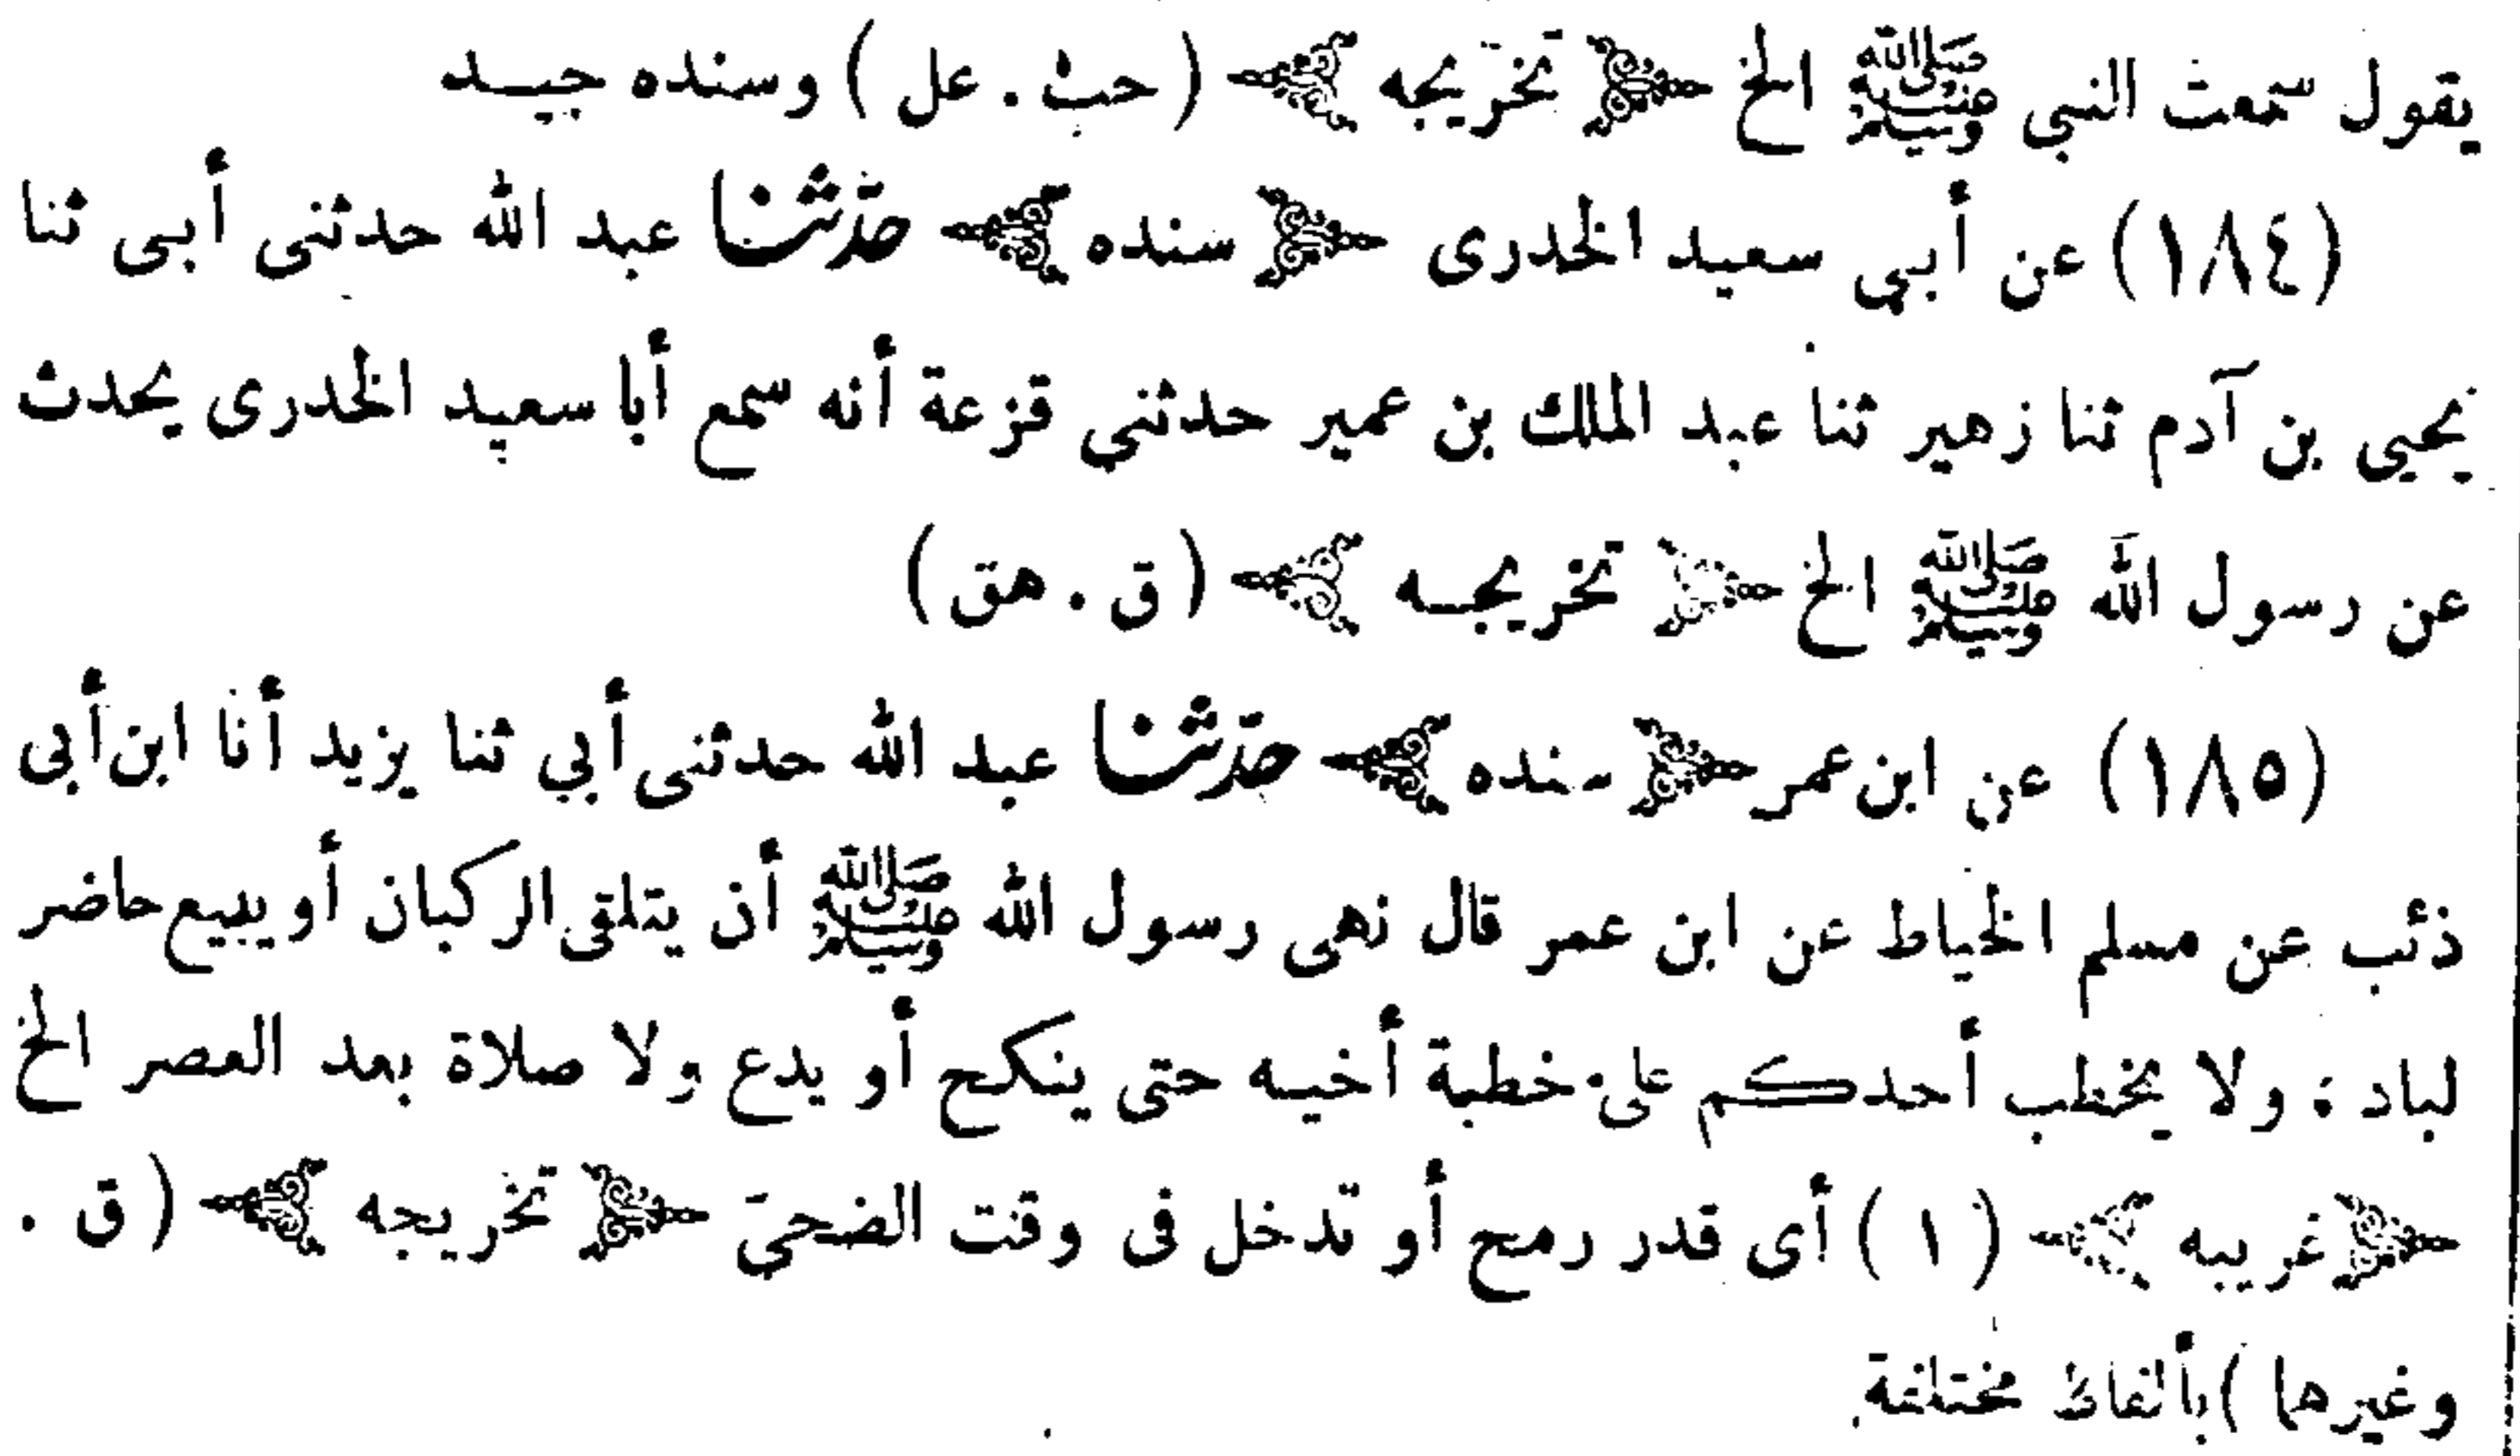 يقول سمعت النبي ﷺ الخ ﴿ تخريجه ﴾ ( حب . عل ) وسنده جيد
(١٨٤) عن أبي سعيد الخدرى ﴿ سنده ﴾ حدثنا عبد الله حدثنى أبى ثنا
يحيي بن آدم ثنا زهير ثنا عبد الملك بن عمير حدثني قزعة أنه سمع أبا سعيد الخدرى يحدث
عن رسول الله ﷺ الخ ﴿ تخريجه ﴾ ( ق . هق )
(١٨٥) عن ابن عمر ﴿ سنده ﴾ حدثنا عبد الله حدثنى أبي ثنا يزيد أنا ابن أبى
ذئب عن مسلم الخياط عن ابن عمر قال نهى رسول الله ﷺ أن يتلقى الركبان أو يبيع حاضر
لباد ، ولا يخطب أحدكم على خطبة أخيه حتى ينكح أو يدع ولا صلاة بعد العصر الخ
﴿ غريبه ﴾ ( ١ ) أى قدر رمح أو تدخل فى وقت الضحي ﴿ تخريجه ﴾ ( ق .
وغيرها ) بألفاظ مختلفة